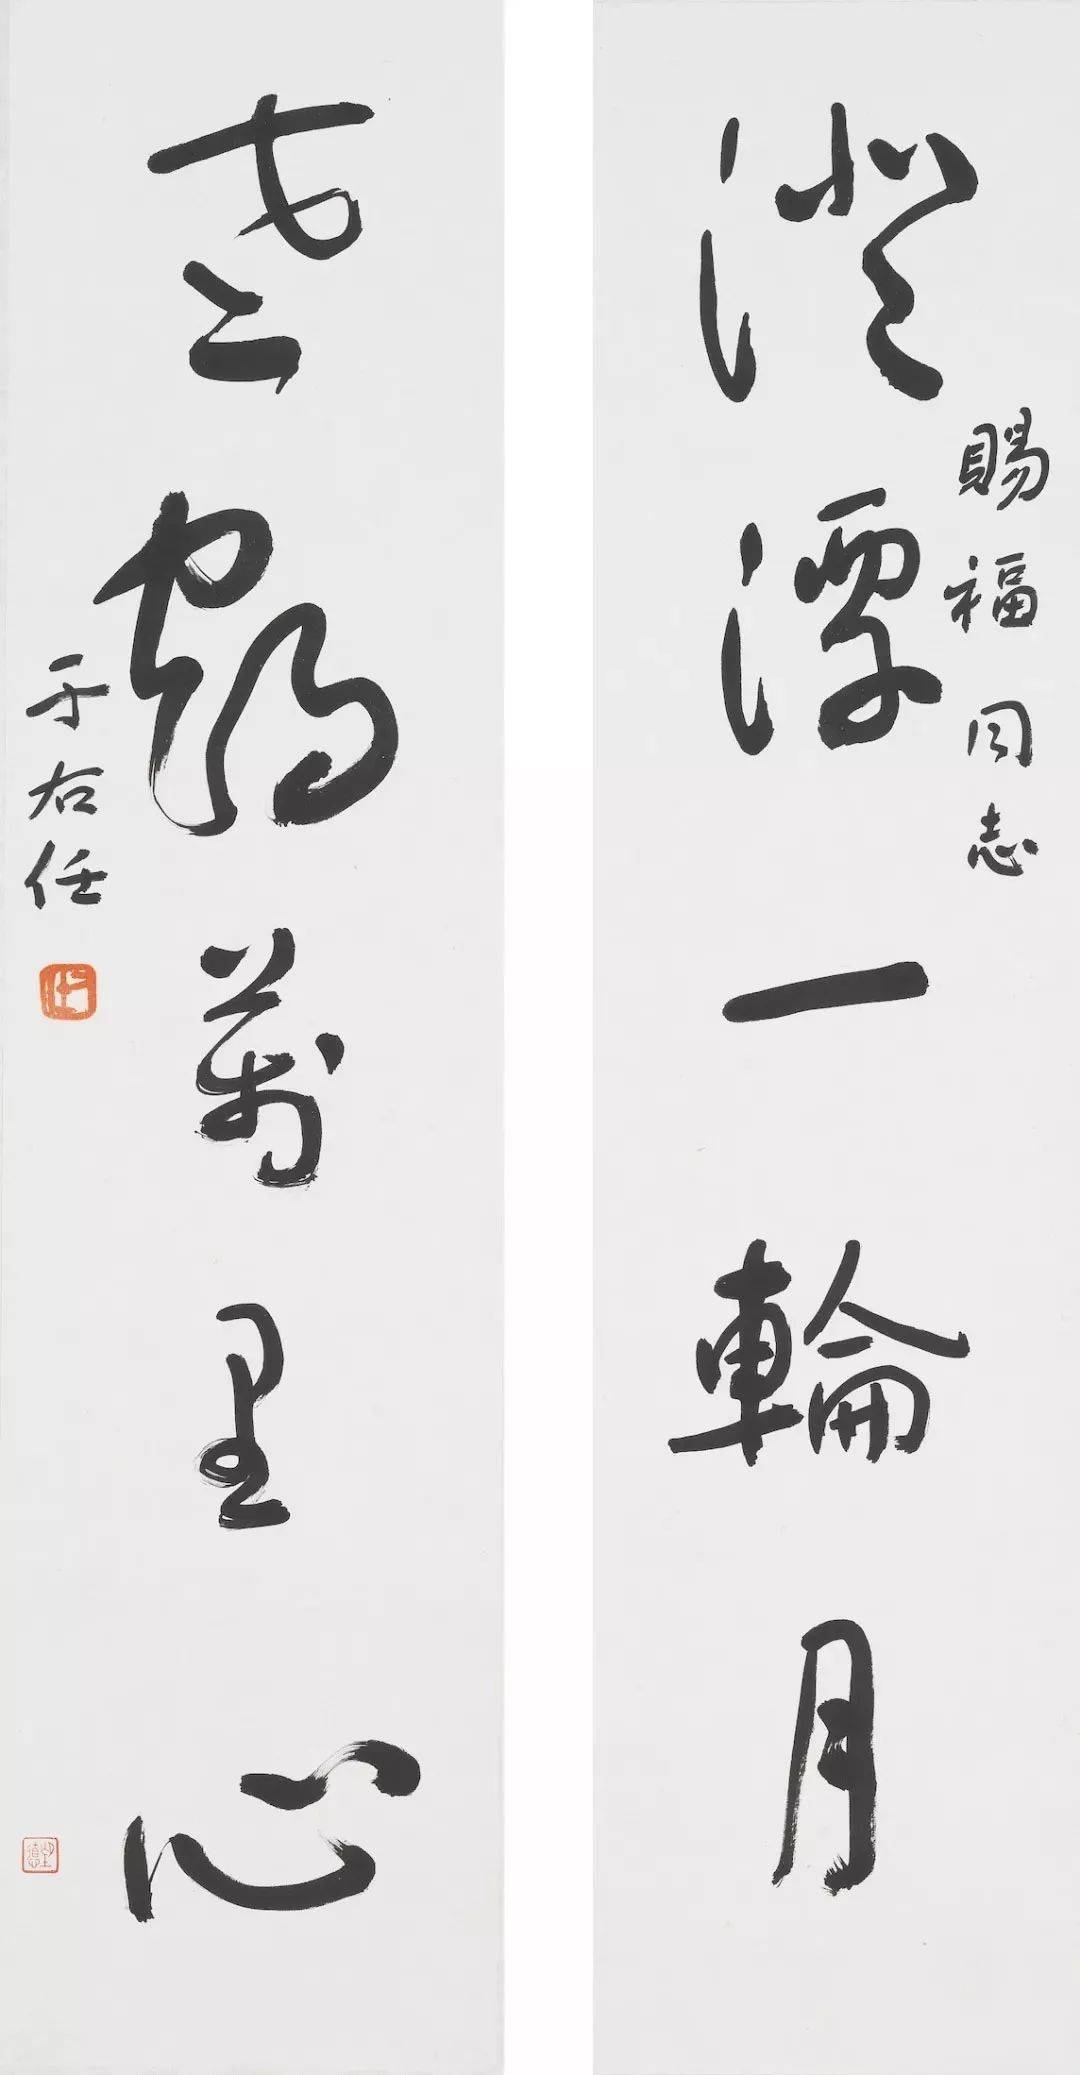 賜福同志
澄潭一輪月
老鶴萬里心
于右任